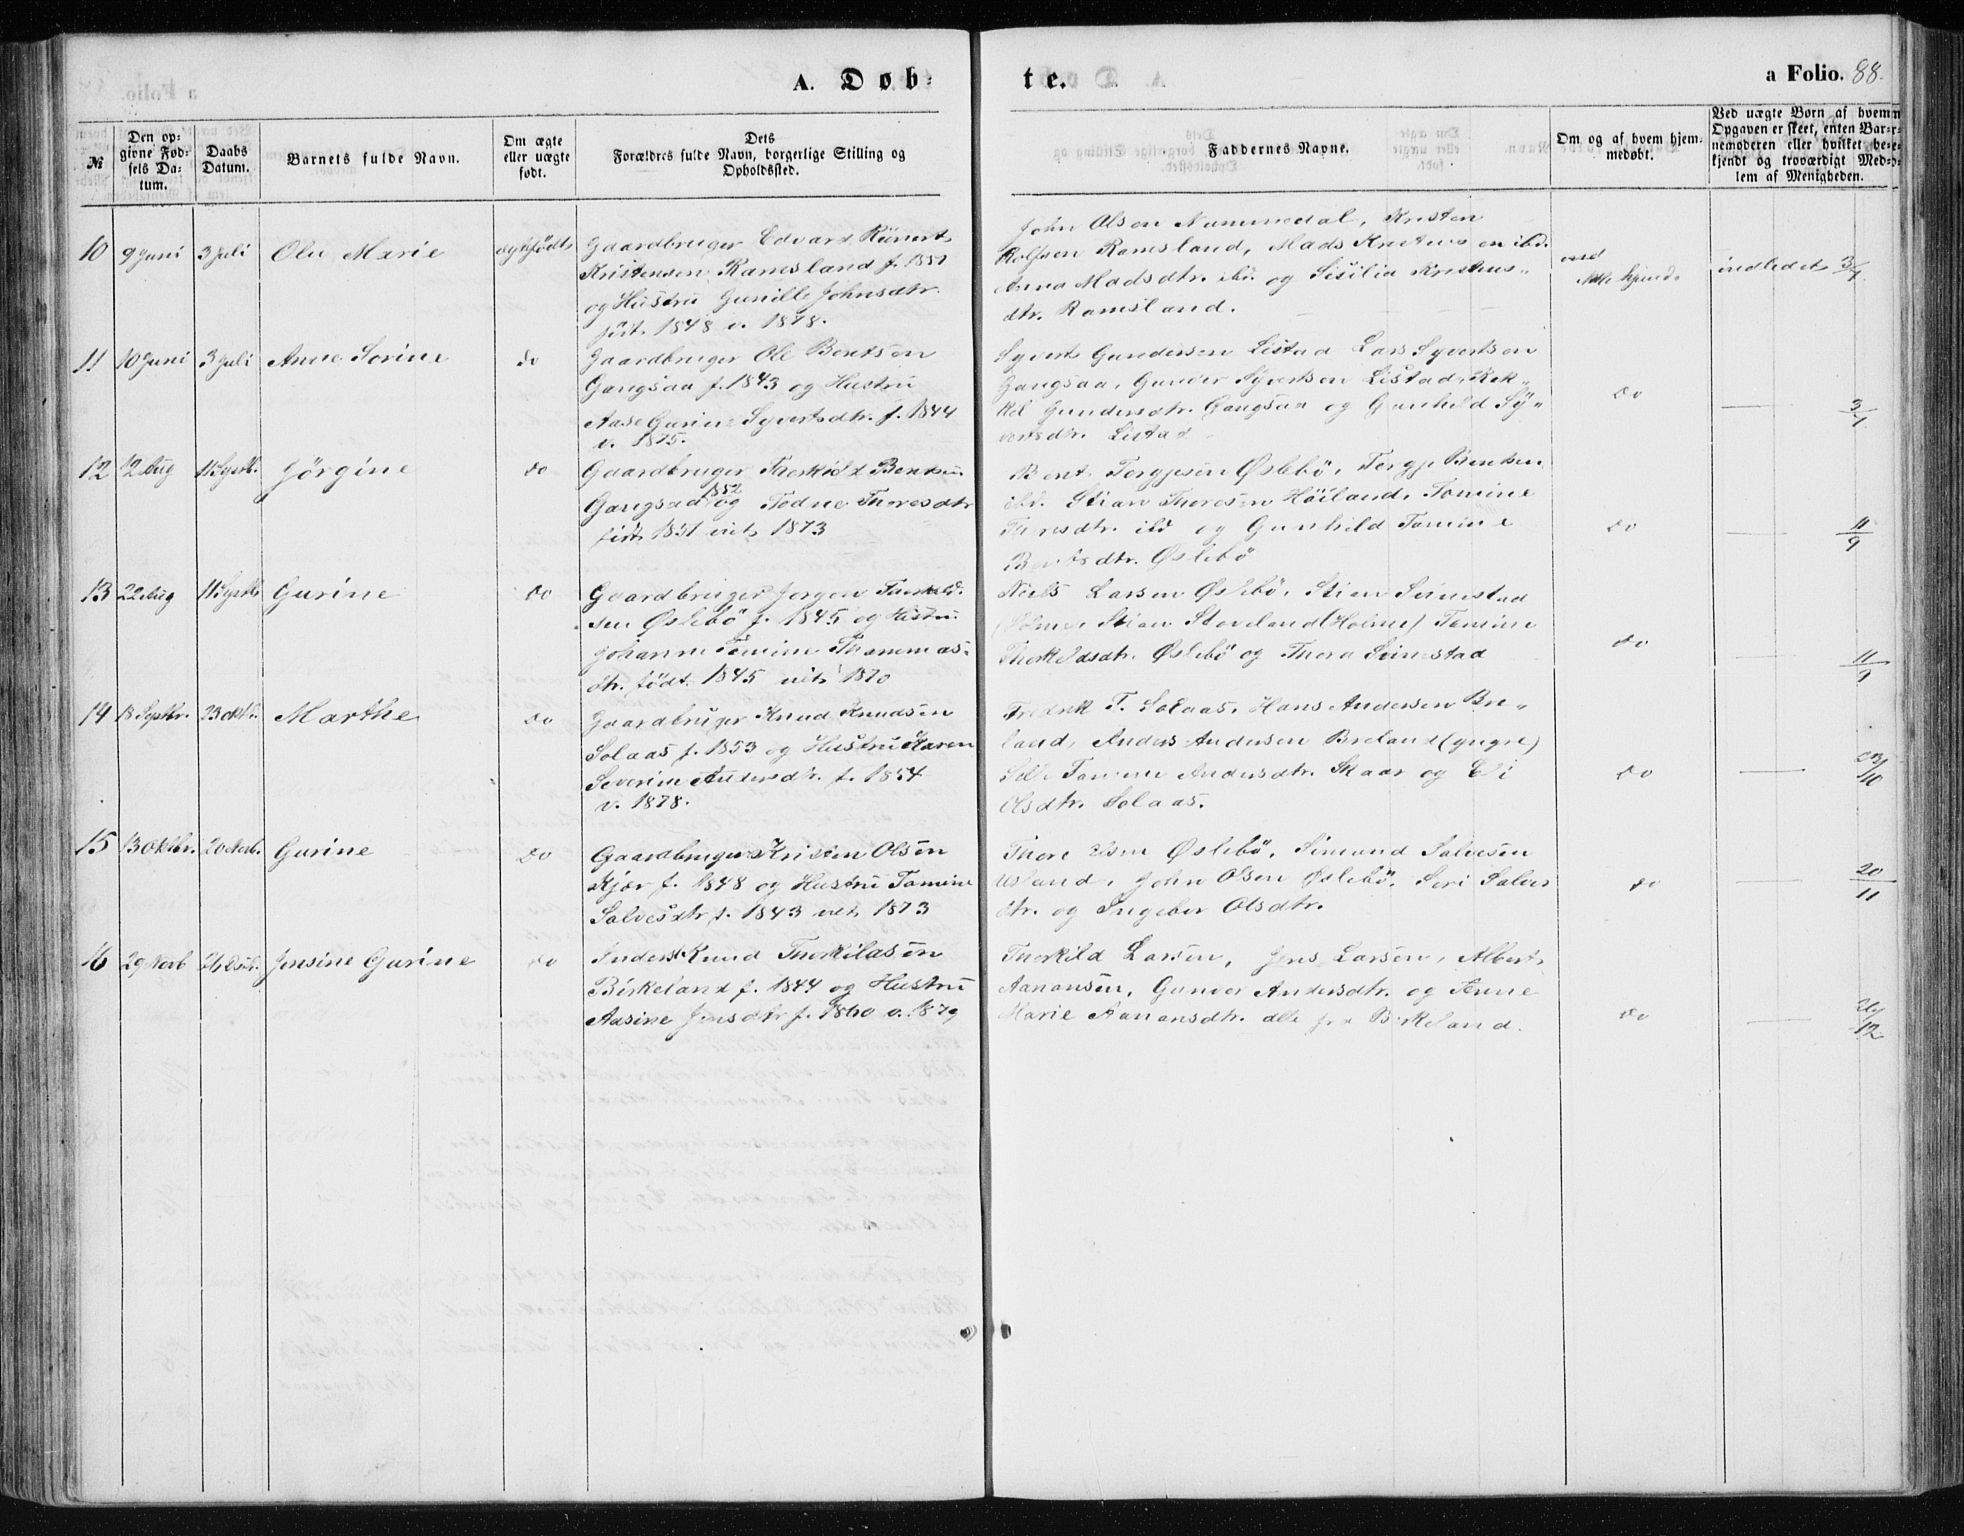 A. Døb-
te.
a Folio. 88.
№
Den op-
givne Fød-
sels Da-
tum.
Daabs
Datum.
Barnets fulde Navn.
Om ægte
eller uægte
født.
Dets
Forældres fulde Navn, borgerlige Stilling og
Opholdssted.
Faddernes Navne.
Om og af hvem hjem-
medøbt.
Ved uægte Børn af hvem
Opgaven er skeet, enten Bar-
nemoderen eller hvilket be-
kjendt og troværdigt Med-
lem af Menigheden.
10 9 Juni 3 Juli Olu Marie ægtefødt
Gaardbruger Edvard
Kristensen Ramsland f. 1851
og Hustru Gunille Johnsdtr.
født 1848 v. 1878.
John Olsen Nummedal, Kristen
Rolfsen Ramsland, Mads ibd.
Anna Madsdtr. ibd. og Sisilia Kristens-
dtr. Ramsland.
indledet 3/7
11 10 Juni 3 Juli Anne Sorine do
Gaardbruger Ole Bentsen
Gangsaa f. 1843 og Hustru
Aase Gurine Syvertsdtr. f. 1844
v. 1875.
Syvert Gundersen Listad Lars Syvertsen
Gangsaa, Gunder Syvertsen Listad, Rak-
kel Gundersdtr. Gangsaa og Gunhild Sy-
vertsdtr. Listad
do — 3/7
12 12 Aug 11 Septb. Jörgine do
Gaardbruger Therkild Bentsen
Gangsaa 1852 og Todne Thoresdtr
født 1851 viet 1873
Bent Tergjesen Øslebö, Tergje Bentsen
ibd. Stian Thoresen Höiland, Tomine
Thoresdtr. ibd og Gunhild Tomine
Bentsdtr. Øslebö
do — 11/9
13 22 Aug 11 Septb Gurine do
Gaardbruger Jorgen Therkild-
sen Øslebö f. 1845 og Hustru
Johanne Tomine Thommas-
dtr. født 1845 viet 1870
Niels Larsen Øslebö, Stian Svinestad
(Holme, Stian Stoveland (Holme) Tomine
Therkildsdtr. Øslebö og Thora Svinestad
do — 11/9
14 18 Septbr. 23 oktb. Marthe do
Gaardbruger Knud Knudsen
Solaas f. 1853 og Hustru Karen
Severine Andersdtr. f. 1854
v. 1878.
Fredrik T. Solaas, Hans Andersen Bre-
land, Anders Andersen Breland (yngre)
Tomine Andersdtr. Skaar og
Olsdtr. Solaas.
do — 23/10
15 13 Oktbr. 20 Novb. Gurine do
Gaardbruger Kristen Olsen
Kjær f. 1848 og Hustru Tomine
Salvesdtr f. 1843 viet 1873
Thore Olsen Øslebö, Simund Salvesen
Usland, John Olsen Øslebö, Seri Salves
dtr. og Ingebor Olsdtr.
do — 20/11
16 29 Novb Jensine Gurine do
Inderst Knud Therkildsen
Birkeland f. 1844 og Hustru
Aasine Jensdtr f. 1860 v. 1879
Therkild Larsen, Jens Larsen, Albert
Aanonsen, Gunvor Andersdtr. og Anne
Marie Aanonsdtr. alle fra Birkeland.
do — 26/12